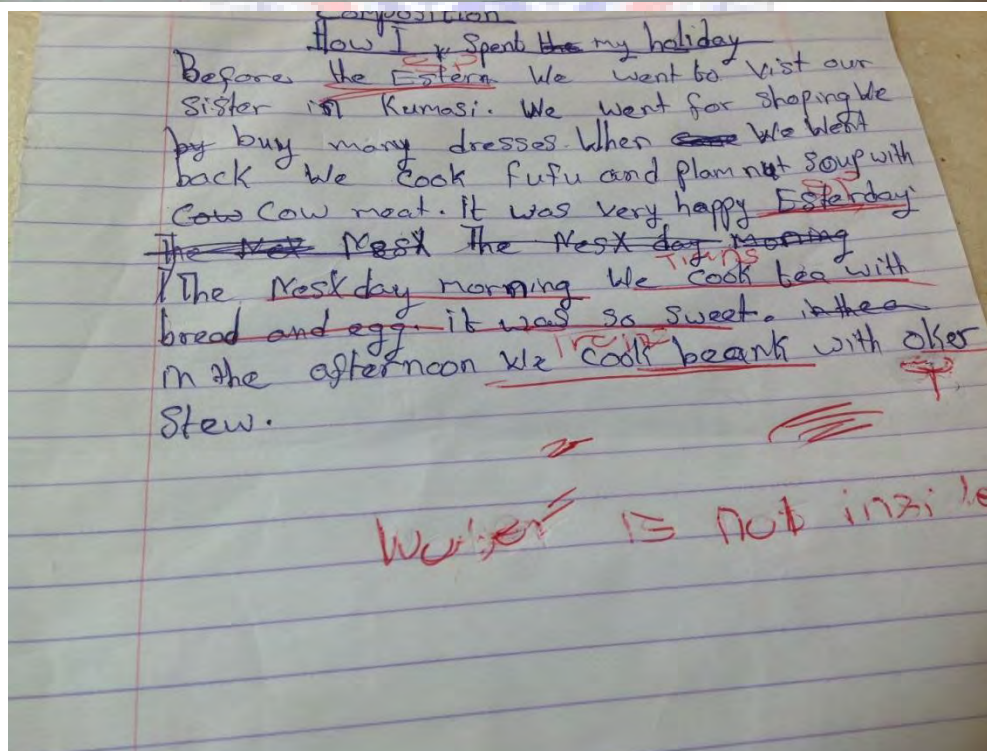 Composition
How I Spent the my holiday
Before the Estern We went to Vist our
Sister in Kumasi. We went for shoping We
by buy many dresses. When We Went
back We Cook fufu and plamnut Soup with
Cow Cow meat. it was very happy Esterday.
The Nex Nest The Nest day moning
The Nest day morning We cook tea with
bread and egg. it was so sweet. in the a
in the afternoon We cook beank with oker
Stew.
is not